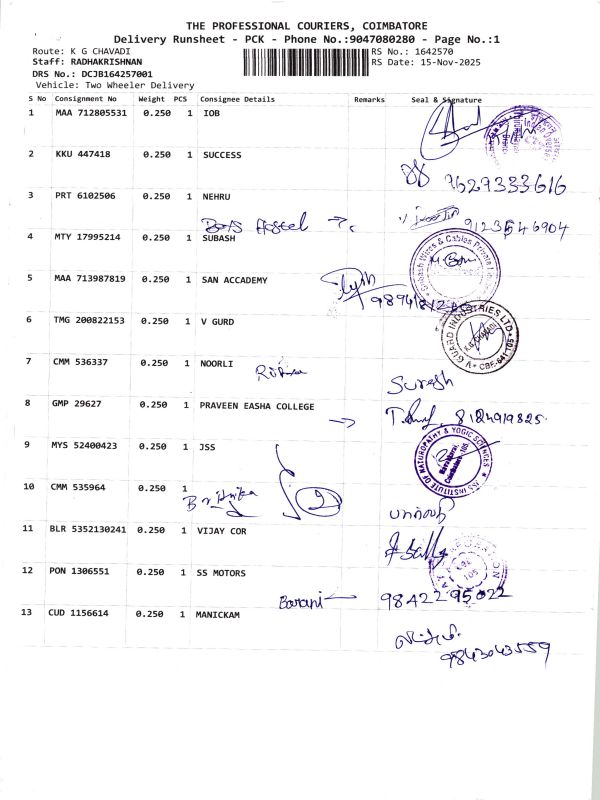 THE PROFESSIONAL COURIERS, COIMBATORE
Delivery Runsheet - PCK - Phone No.:9047080280 - Page No.:1
Route: K G CHAVADI RS No.: 1642570
Staff: RADHAKRISHNAN RS Date: 15-Nov-2025
DRS No.: DCJB164257001
Vehicle: Two Wheeler Delivery
S No Consignment No Weight PCS Consignee Details Remarks Seal & Signature
1 MAA 712805531 0.250 1 IOB
2 KKU 447418 0.250 1 SUCCESS
7627333616
3 PRT 6102506 0.250 1 NEHRU
Boys Hostel 9123546904
4 MTY 17995214 0.250 1 SUBASH
Subash Wires & Cables Private
5 MAA 713987819 0.250 1 SAN ACCADEMY
6 TMG 200822153 0.250 1 V GURD
V GUARD INDUSTRIES LTD
K.G.CHAVADI
CBE-641 105
7 CMM 536337 0.250 1 NOORLI
Suresh
8 GMP 29627 0.250 1 PRAVEEN EASHA COLLEGE
8124919825
9 MYS 52400423 0.250 1 JSS
JSS INSTITUTE OF NATUROPATHY & YOGIC SCIENCES
Coimbatore-105
10 CMM 535964 0.250 1
11 BLR 5352130241 0.250 1 VIJAY COR
12 PON 1306551 0.250 1 SS MOTORS
Barani 98422 95022
13 CUD 1156614 0.250 1 MANICKAM
9843043559